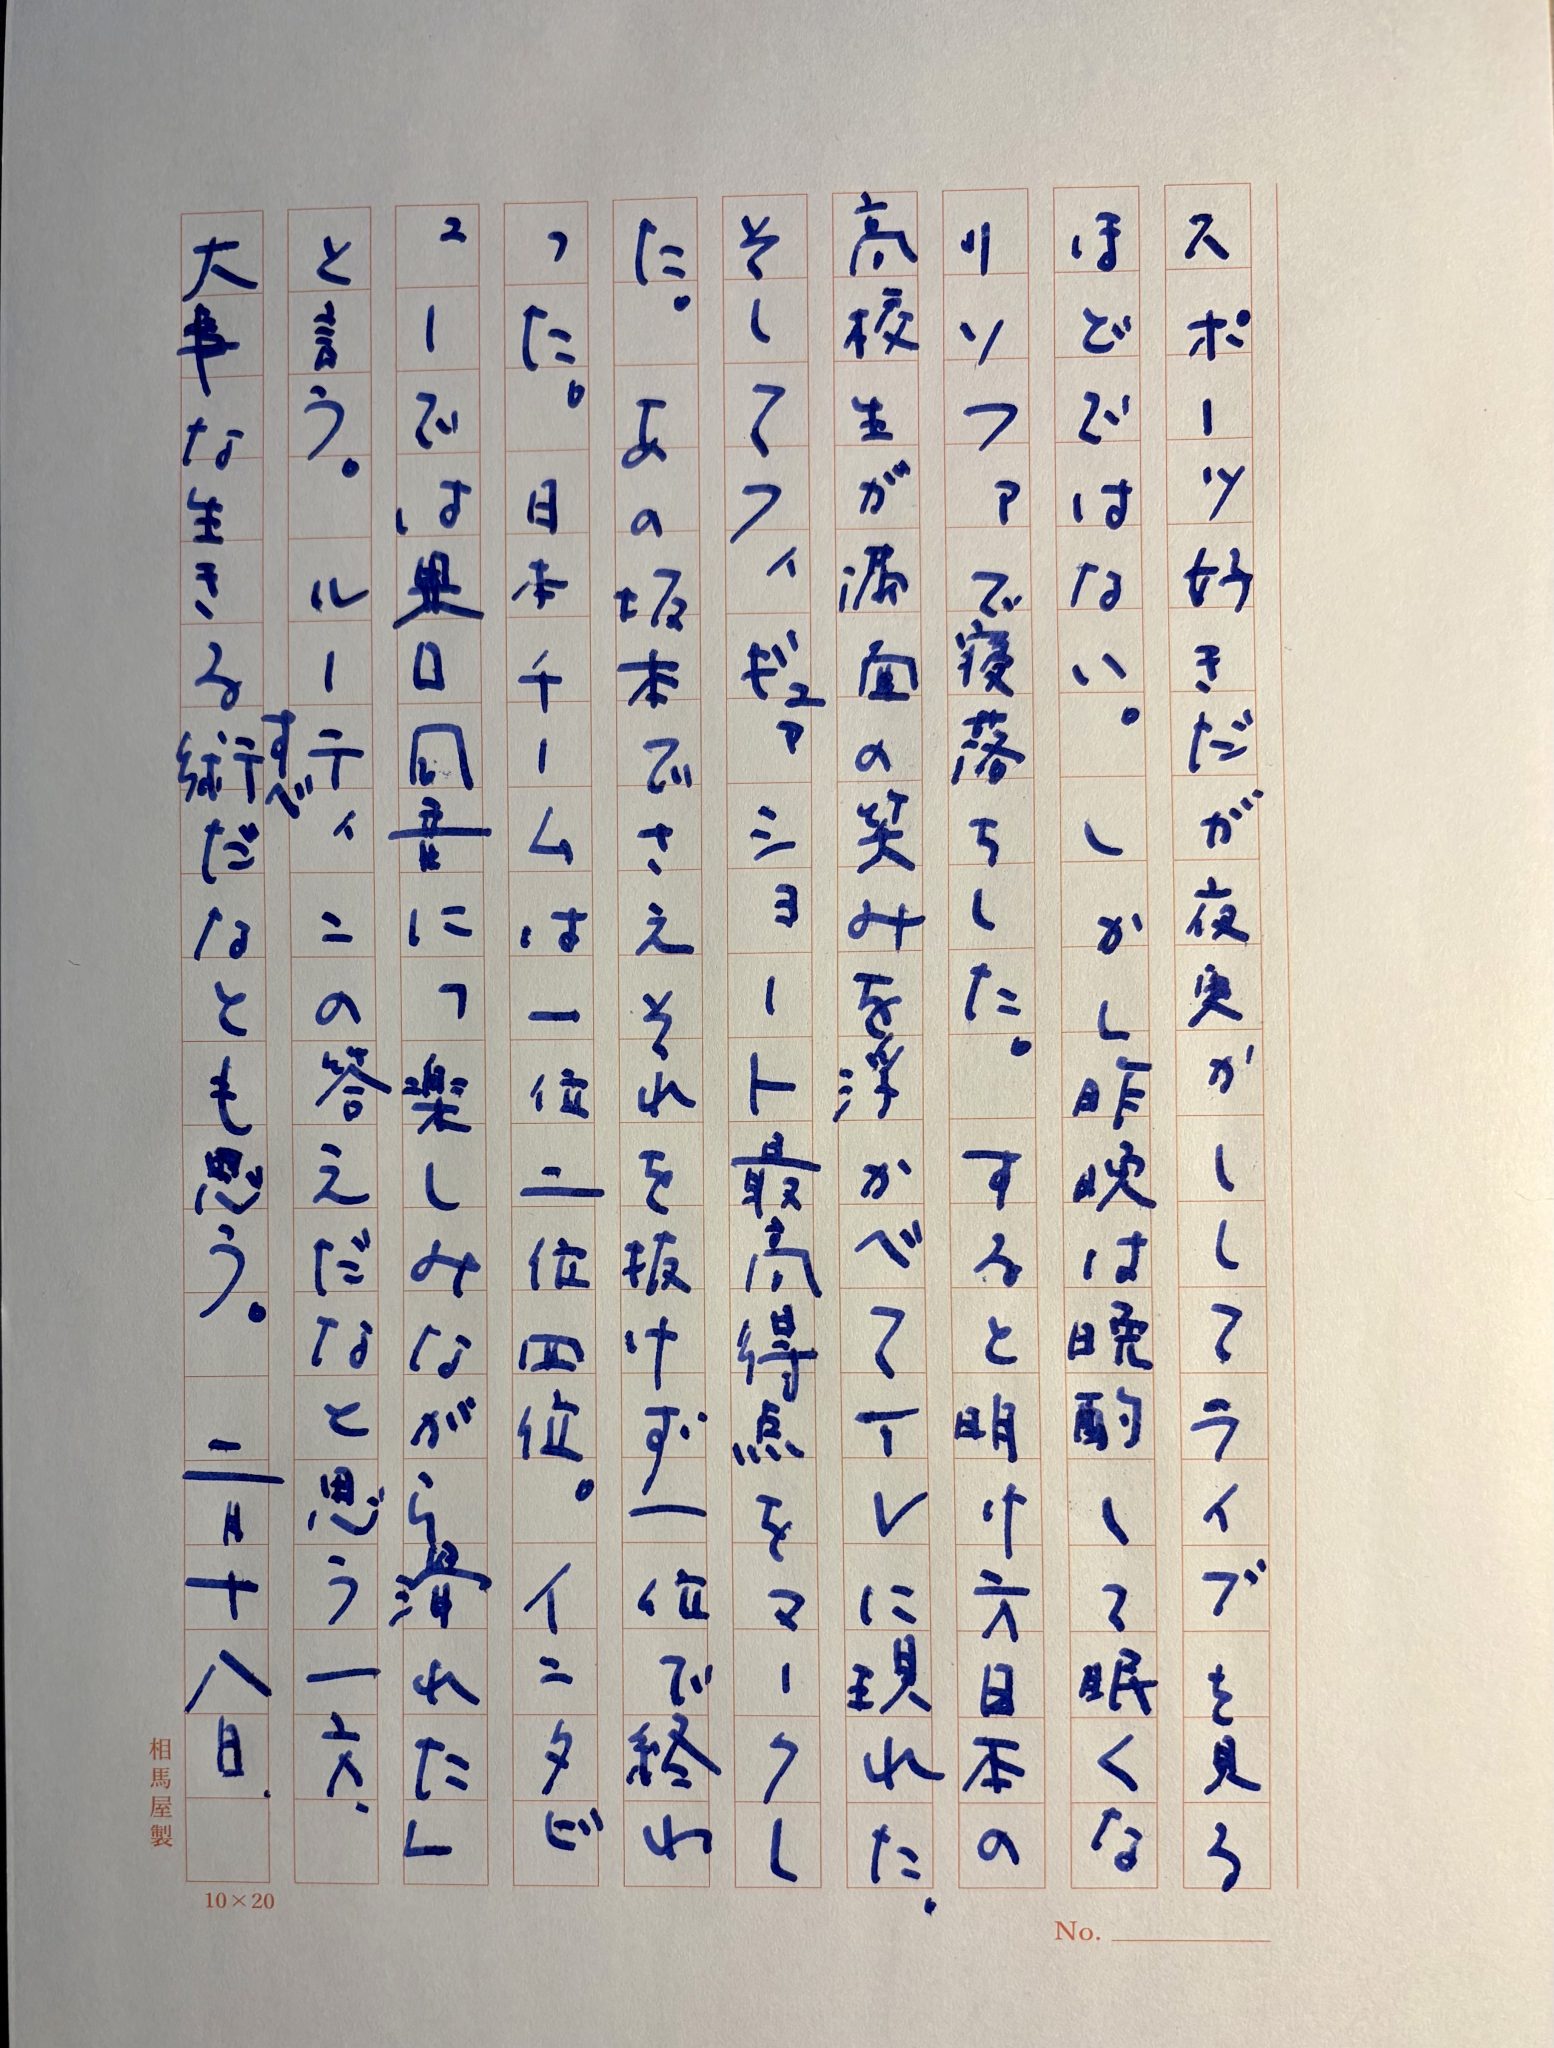 スポーツ好きだが夜更かししてライブを見る
ほどではない。 しかし昨晩は晩酌して眠くな
りソファで寝落ちした。 すると明け方日本の
高校生が満面の笑みを浮かべてテレに現れた。
そしてフィギュアショート最高得点をマークし
た。 あの坂本でさえそれを抜けず一位で終わ
った。 日本チームは一位二位四位。 インタビ
ューでは異口同音に「楽しみながら滑れた」
と言う。 ルーティンの答えだなと思う一方、
すべ
大事な生きる術だなとも思う。 二月十八日.
相馬屋製
10×20
No.